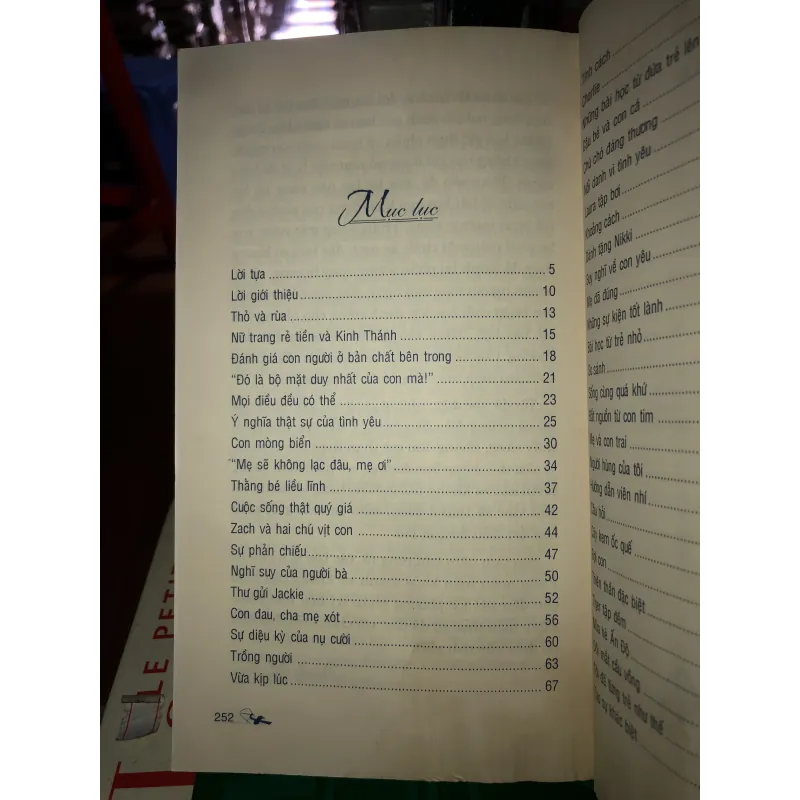 Mục lục
Lời tựa ........ 5
Lời giới thiệu ........ 10
Thỏ và rùa ........ 13
Nữ trang rẻ tiền và Kinh Thánh ........ 15
Đánh giá con người ở bản chất bên trong ........ 18
“Đó là bộ mặt duy nhất của con mà!” ........ 21
Mọi điều đều có thể ........ 23
Ý nghĩa thật sự của tình yêu ........ 25
Con mòng biển ........ 30
“Mẹ sẽ không lạc đâu, mẹ ơi” ........ 34
Thằng bé liều lĩnh ........ 37
Cuộc sống thật quý giá ........ 42
Zach và hai chú vịt con ........ 44
Sự phản chiếu ........ 47
Nghĩ suy của người bà ........ 50
Thư gửi Jackie ........ 52
Con đau, cha mẹ xót ........ 56
Sự diệu kỳ của nụ cười ........ 60
Trồng người ........ 63
Vừa kịp lúc ........ 67
252
Tính cách
Charlie
Những bài học từ đứa trẻ lên
Cậu bé và con cá
Chú chó đáng thương
danh vì tình yêu
Laura tập bơi
Khoảng cách
tặng Nikki
Suy nghĩ về con yêu
Mẹ đã đúng
Những sự kiện tốt lành
Bài học từ trẻ nhỏ
So sánh
Sống cùng quá khứ
Bắt nguồn từ con tim
Mẹ và con trai
Người hùng của tôi
Hướng dẫn viên nhí
Câu hỏi
kem ốc quế
con
Thiên thần đặc biệt
tập đếm
Ấn Độ
mắt cầu vồng
đã từng trẻ như thế
sự khác biệt
LE PETI